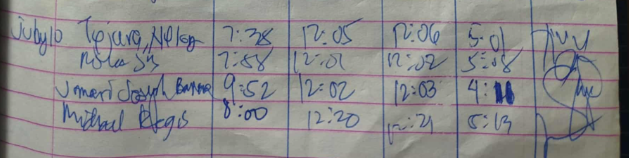 July 10 Tejara, Nelson 7:38 12:05 12:06 5:01
7:58 12:01 12:02 5:08
Joseph 9:52 12:02 12:03 4:11
Michael 8:00 12:20 12:21 5:13